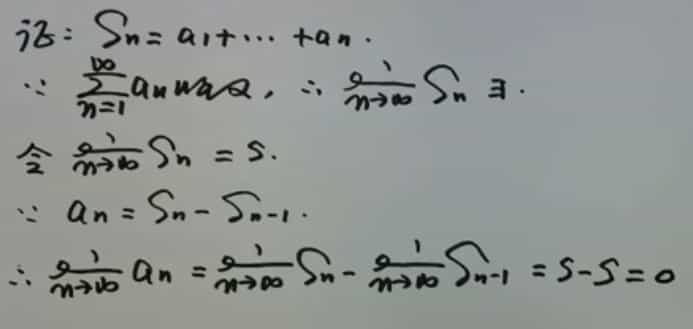 证: Sn = a1+⋯+an.
∵ ∑_{n=1}^{∞} an 收敛, ∴ lim_{n→∞} Sn ∃.
令 lim_{n→∞} Sn = S.
∵ an = Sn - Sn-1.
∴ lim_{n→∞} an = lim_{n→∞} Sn - lim_{n→∞} Sn-1 = S-S=0